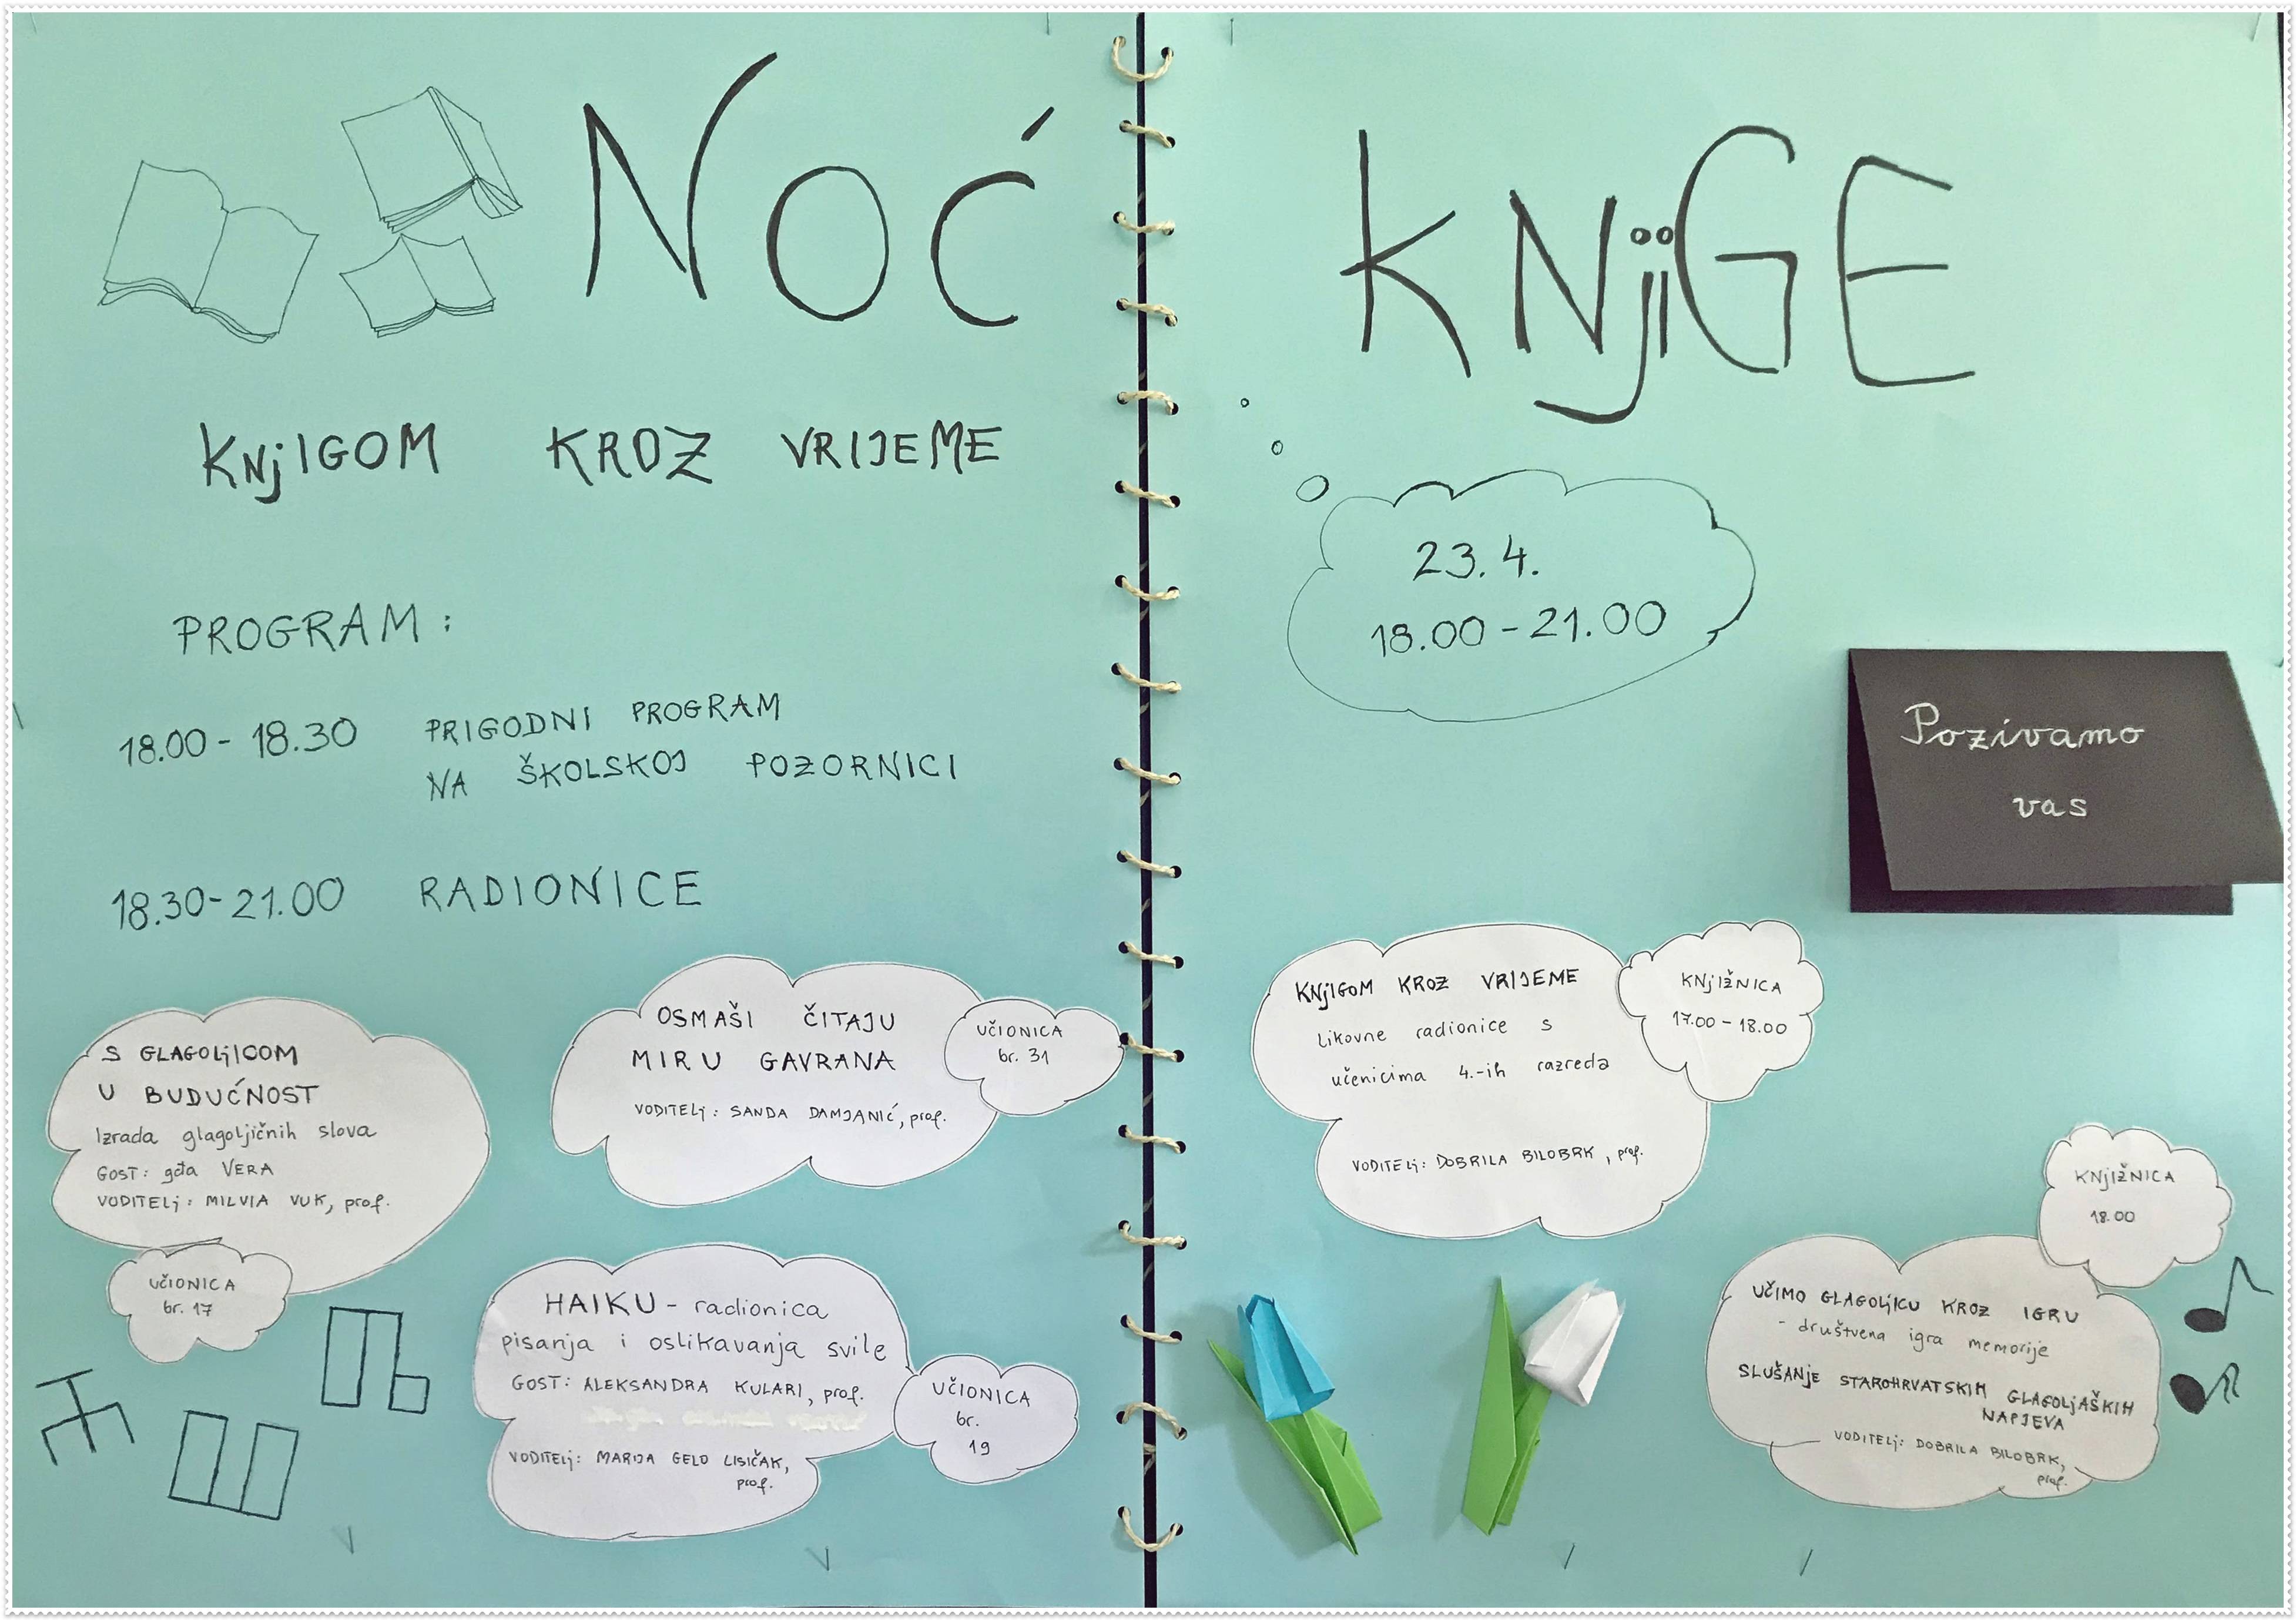 NOĆ
KNjiGE
KNjIGOM KROZ VRIJEME
23. 4.
18.00 - 21.00
PROGRAM :
18.00 - 18.30 PRIGODNI PROGRAM
NA ŠKOLSKOJ POZORNICI
18.30 - 21.00 RADIONICE
Pozivamo
vas
S GLAGOLjICOM
U BUDUĆNOST
Izrada glagoljičnih slova
GOST: gđa VERA
VODITELj: MILVIA VUK, prof.
UČIONICA
br. 17
OSMAŠI ČITAJU
MIRU GAVRANA
VODITELj: SANDA DAMJANIĆ, prof.
UČIONICA
br. 31
HAIKU - radionica
pisanja i oslikavanja svile
GOST: ALEKSANDRA KULARI, prof.
VODITELj: MARIJA GELO LISIČAK,
prof.
UČIONICA
br.
19
KNjIGOM KROZ VRIJEME
likovne radionice s
učenicima 4.-ih razreda
VODITELj: DOBRILA BILOBRK, prof.
KNjIŽNICA
17.00 - 18.00
KNjIŽNICA
18.00
UČIMO GLAGOLjICU KROZ IGRU
- društvena igra memorije
SLUŠANjE STAROHRVATSKIH GLAGOLjAŠKIH
NAPJEVA
VODITELj: DOBRILA BILOBRK,
prof.